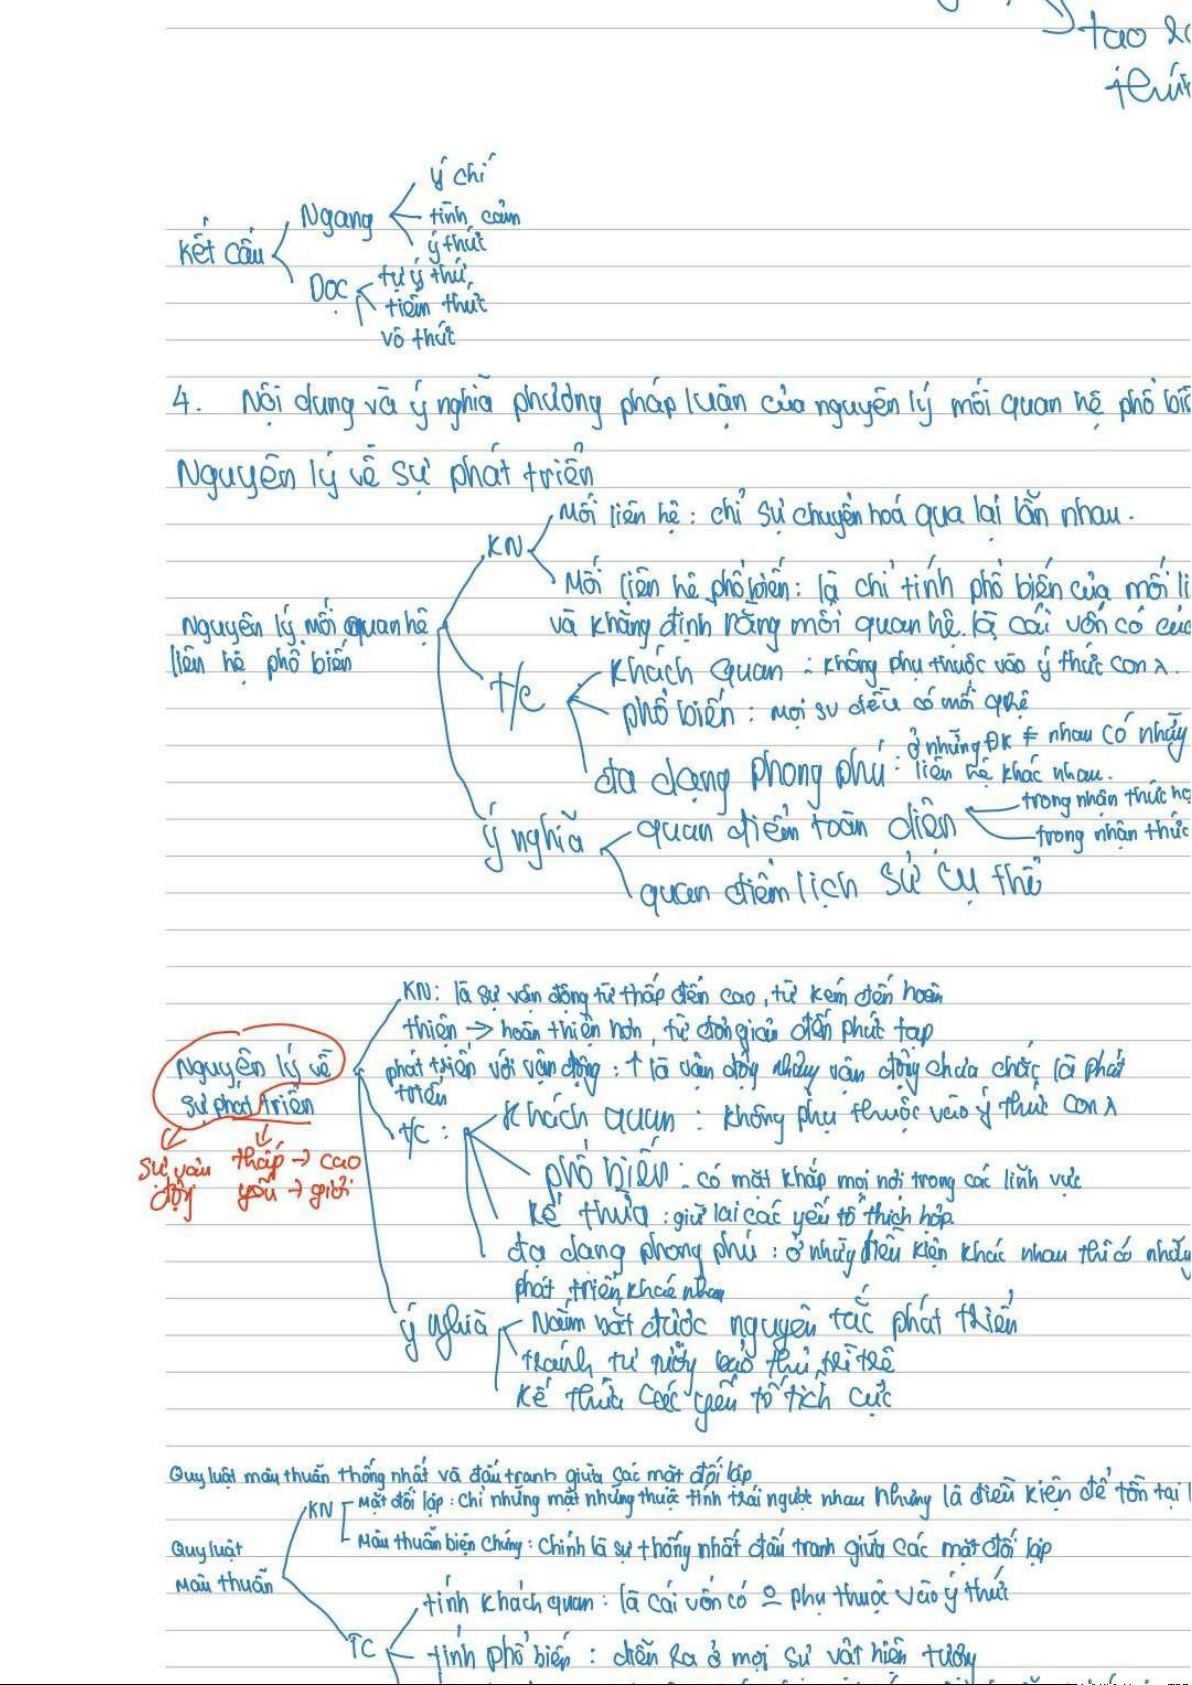 tạo ra
thức
ý chí
Ngang
tình cảm
Kết cấu
ý thức
Dọc
tự ý thức
tiềm thức
vô thức
4. Nội dung và ý nghĩa phương pháp luận của nguyên lý mối quan hệ phổ biến
Nguyên lý về sự phát triển
Mối liên hệ : chỉ sự chuyển hoá qua lại lẫn nhau.
KN
Mối liên hệ phổ biến : là chỉ tính phổ biến của mối li
Nguyên lý mối quan hệ
và khẳng định rằng mối quan hệ là cái vốn có của
liên hệ phổ biến
Khách quan : không phụ thuộc vào ý thức con λ.
T/C
phổ biến : mọi sv đều có mối qhệ
ở những ĐK ≠ nhau có những
đa dạng phong phú : liên hệ khác nhau.
trong nhận thức
quan điểm toàn diện
trong nhận thức
ý nghĩa
quan điểm lịch sử cụ thể
KN: là sự vận động từ thấp đến cao, từ kém đến hoàn
thiện → hoàn thiện hơn, từ đơn giản đến phức tạp
Nguyên lý về
phát triển với vận động : ↑ là vận động nhưng vận động chưa chắc là phát
triển
sự phát triển
T/C :
Khách quan : không phụ thuộc vào ý thức con λ
sự vận động
thấp → cao
yếu → giỏi
phổ biến : có mặt khắp mọi nơi trong các lĩnh vực
kế thừa : giữ lại các yếu tố thích hợp
đa dạng phong phú : ở những điều kiện khác nhau thì có những
phát triển khác nhau
ý nghĩa
Nắm bắt được nguyên tắc phát triển
tránh tư tưởng bảo thủ, trì trệ
kế thừa các yếu tố tích cực
Quy luật mâu thuẫn thống nhất và đấu tranh giữa các mặt đối lập
KN
Mặt đối lập : Chỉ những mặt những thuộc tính trái ngược nhau nhưng là điều kiện để tồn tại
Quy luật
mâu thuẫn
Mâu thuẫn biện chứng : Chính là sự thống nhất đấu tranh giữa các mặt đối lập
tính khách quan : là cái vốn có phụ thuộc vào ý thức
TC
tính phổ biến : diễn ra ở mọi sự vật hiện tượng